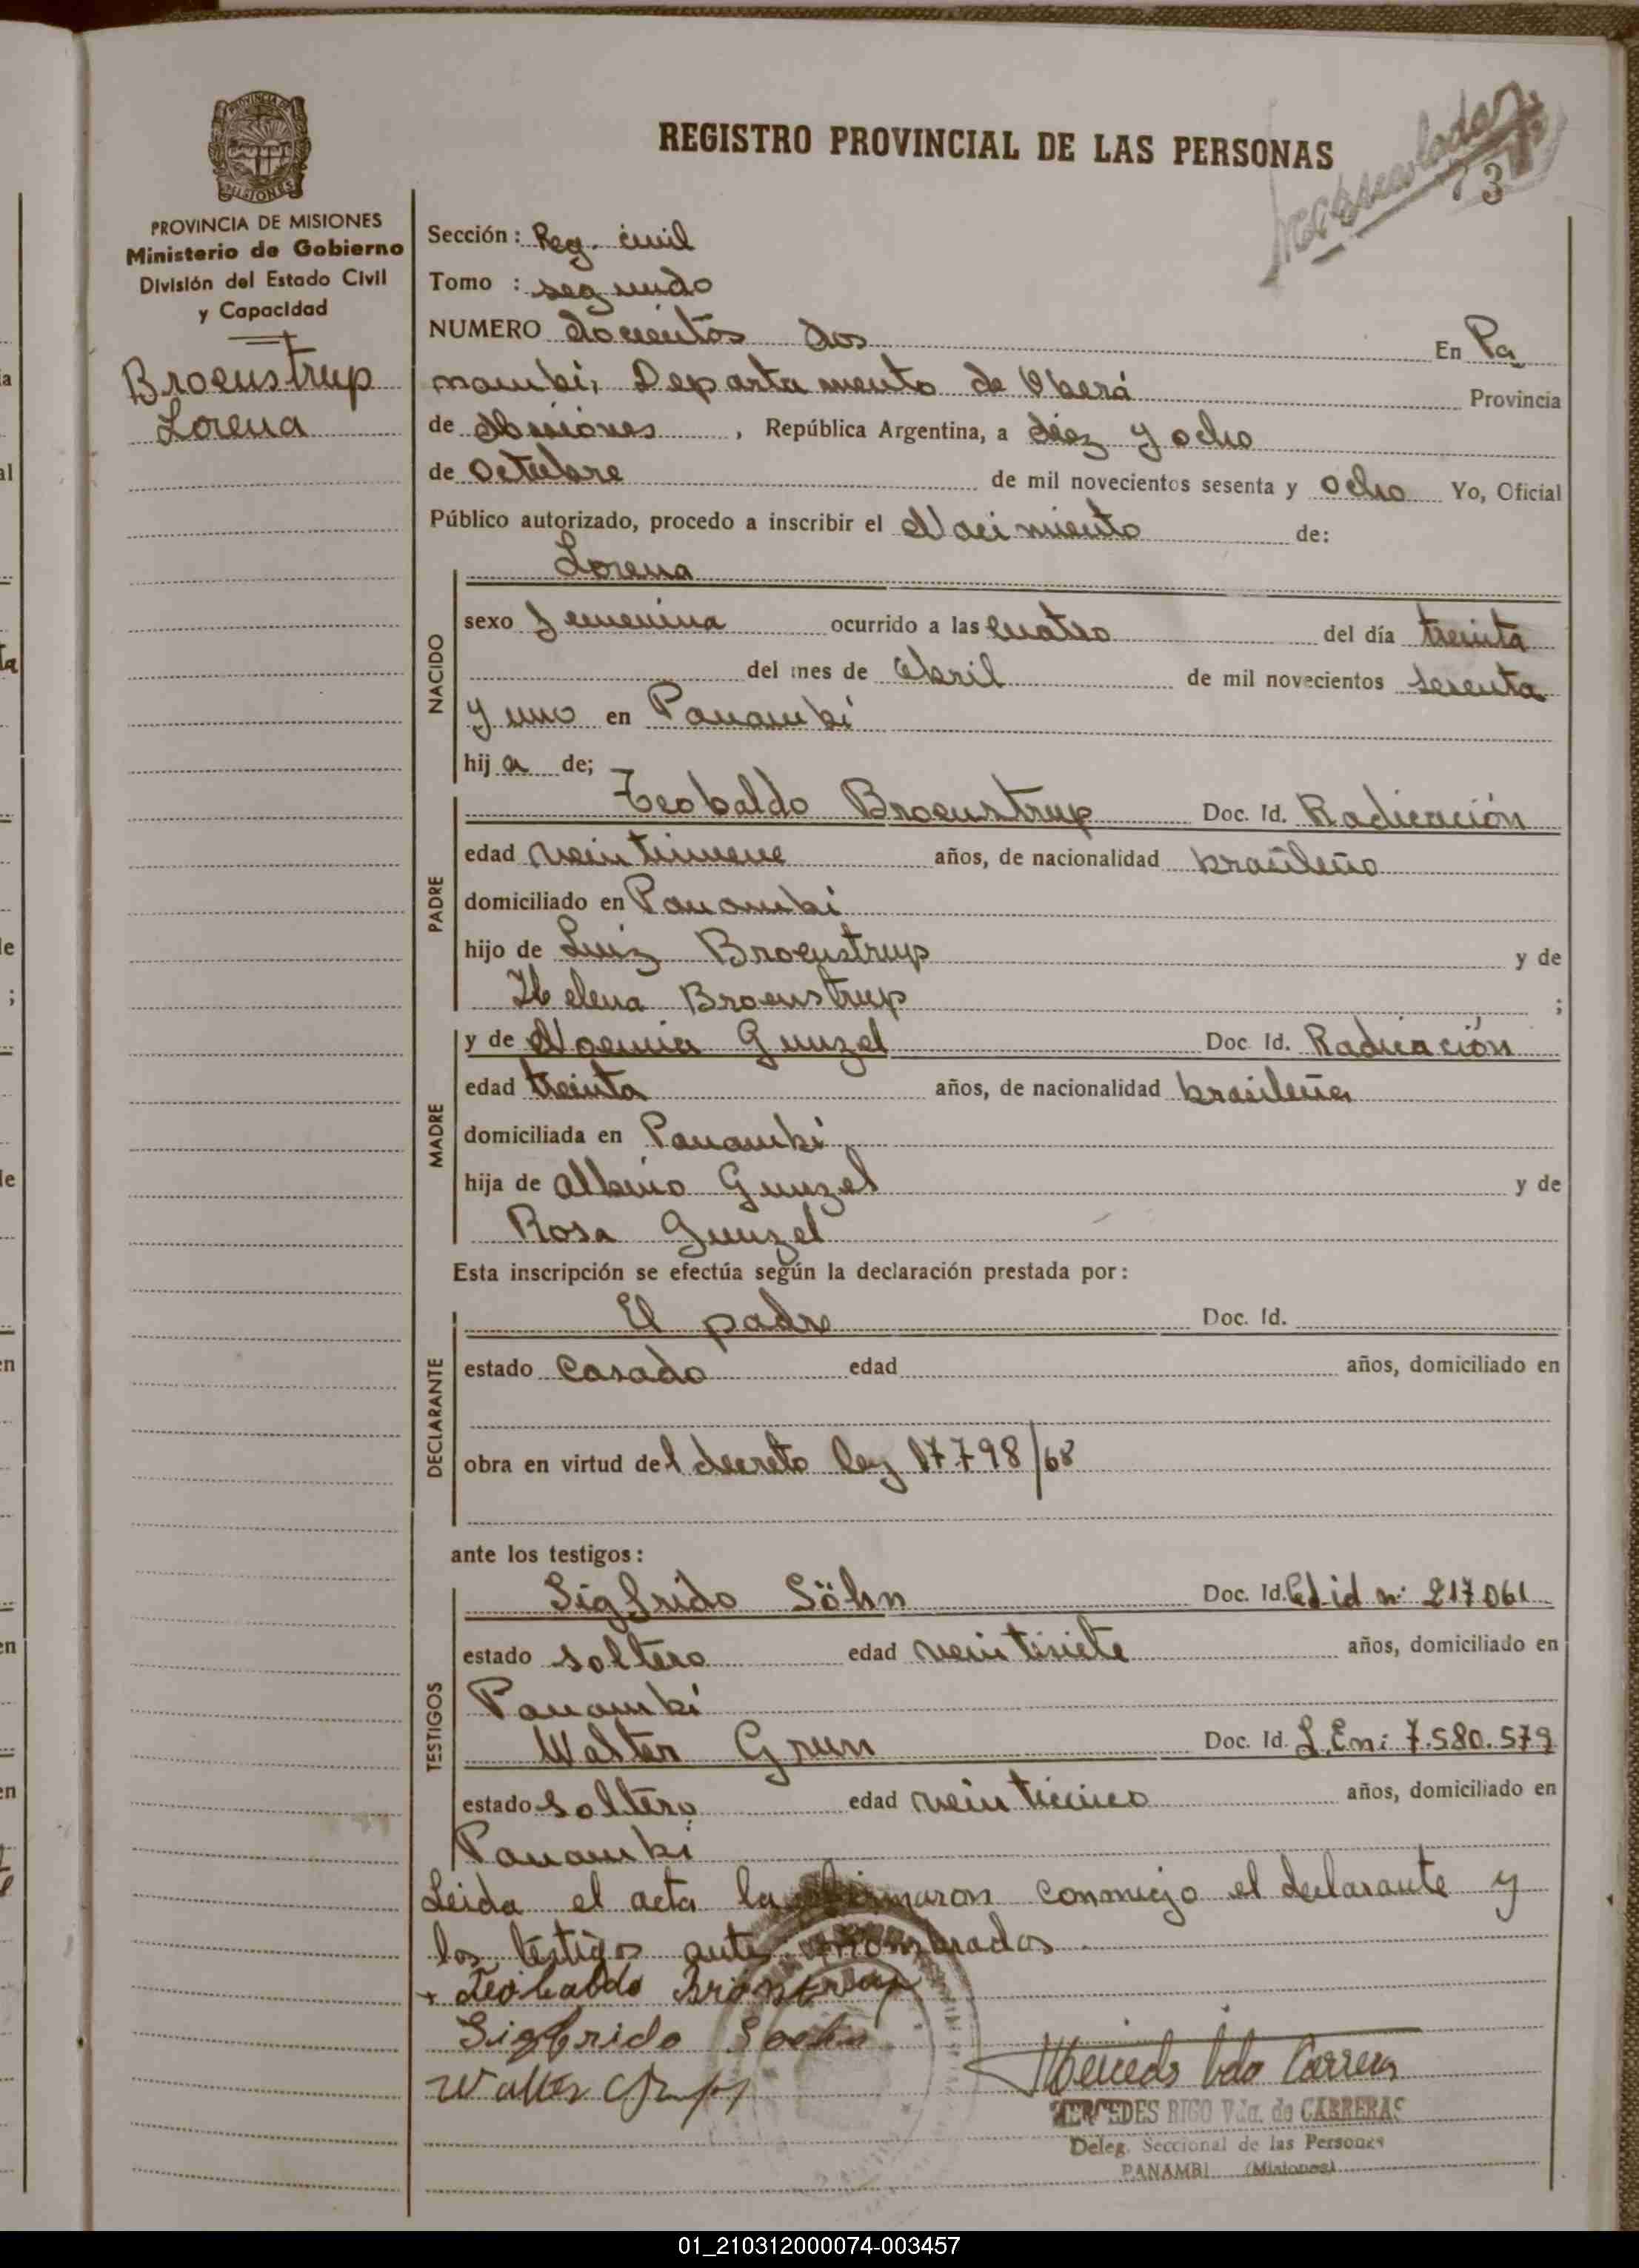 REGISTRO PROVINCIAL DE LAS PERSONAS
73
PROVINCIA DE MISIONES
PROVINCIA DE MISIONES
Ministerio de Gobierno
División del Estado Civil
y Capacidad
Broeustrup
Lorena
Sección: Reg. civil
Tomo : segundo
NUMERO docientos dos En Pa
nambi, Departamento de Oberá Provincia
de Misiones, República Argentina, a diez y ocho
de Octubre de mil novecientos sesenta y ocho Yo, Oficial
Público autorizado, procedo a inscribir el Nacimiento de:
Lorena
NACIDO
sexo femenina ocurrido a las cuatro del día treinta
del mes de Abril de mil novecientos sesenta
y uno en Panambi
hij a de;
PADRE
Teobaldo Broeustrup Doc. Id. Radicación
edad veintinueve años, de nacionalidad brasileño
domiciliado en Panambi
hijo de Luiz Broeustrup y de
Helena Broeustrup ;
MADRE
y de Noemia Gunzel Doc. Id. Radicación
edad treinta años, de nacionalidad brasileña
domiciliada en Panambi
hija de Albino Gunzel y de
Rosa Gunzel
Esta inscripción se efectúa según la declaración prestada por:
DECLARANTE
El padre Doc. Id.
estado Casado edad años, domiciliado en
obra en virtud del decreto ley 17798/68
ante los testigos:
TESTIGOS
Sigfrido Söhn Doc. Id. Cd id nº 217061
estado soltero edad veintisiete años, domiciliado en
Panambi
Walter Grun Doc. Id. L.En: 7.580.579
estado soltero edad veinticinco años, domiciliado en
Panambi
Leida el acta la firmaron conmigo el declarante y
los testigos antes nombrados
+ Teobaldo
Sigfrido Soehn
Walter
Mercedes Vda Carrera
MERCEDES RIGO Vda. de CARRERAS
Deleg. Seccional de las Personas
PANAMBI (Misiones)
01_210312000074-003457